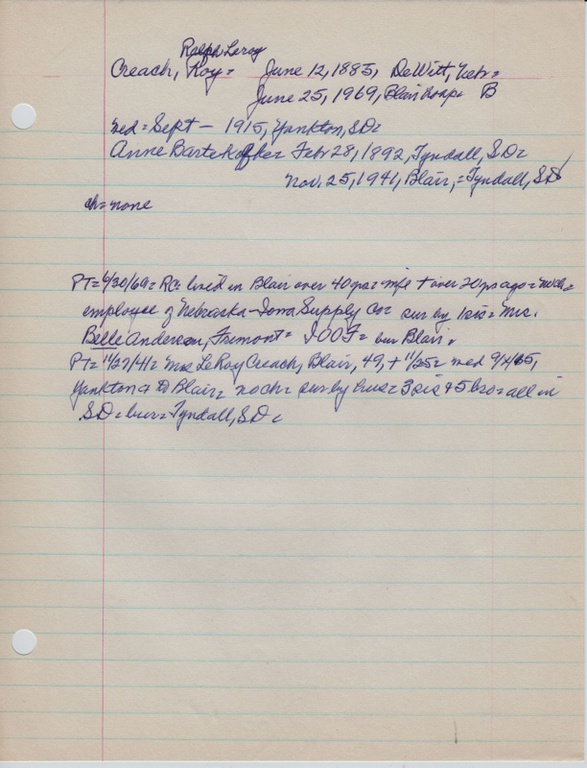 Ralph Leroy
Creach, Roy = June 12, 1885, DeWitt, Nebr =
June 25, 1969, Blair hosp = B
med = Sept - 1915, Yankton, SD =
Anne Feb 28, 1892, Tyndall, SD =
Nov. 25, 1941, Blair, = Tyndall, SD
ch = none
PT = 6/30/69 = RC = lived in Blair over 40 yrs = wife + over 20 yrs ago =
employee of Nebraska-Iowa Supply Co = sur by 1 sis = Mrs.
Belle Anderson, Fremont = IOOF = bur Blair =
PT = 11/27/41 = Mrs LeRoy Creach, Blair, 49, + 11/25 = med
Yankton + Blair = no ch = sur by hus = 3 sis + 5 bro = all in
SD = bur = Tyndall, SD =